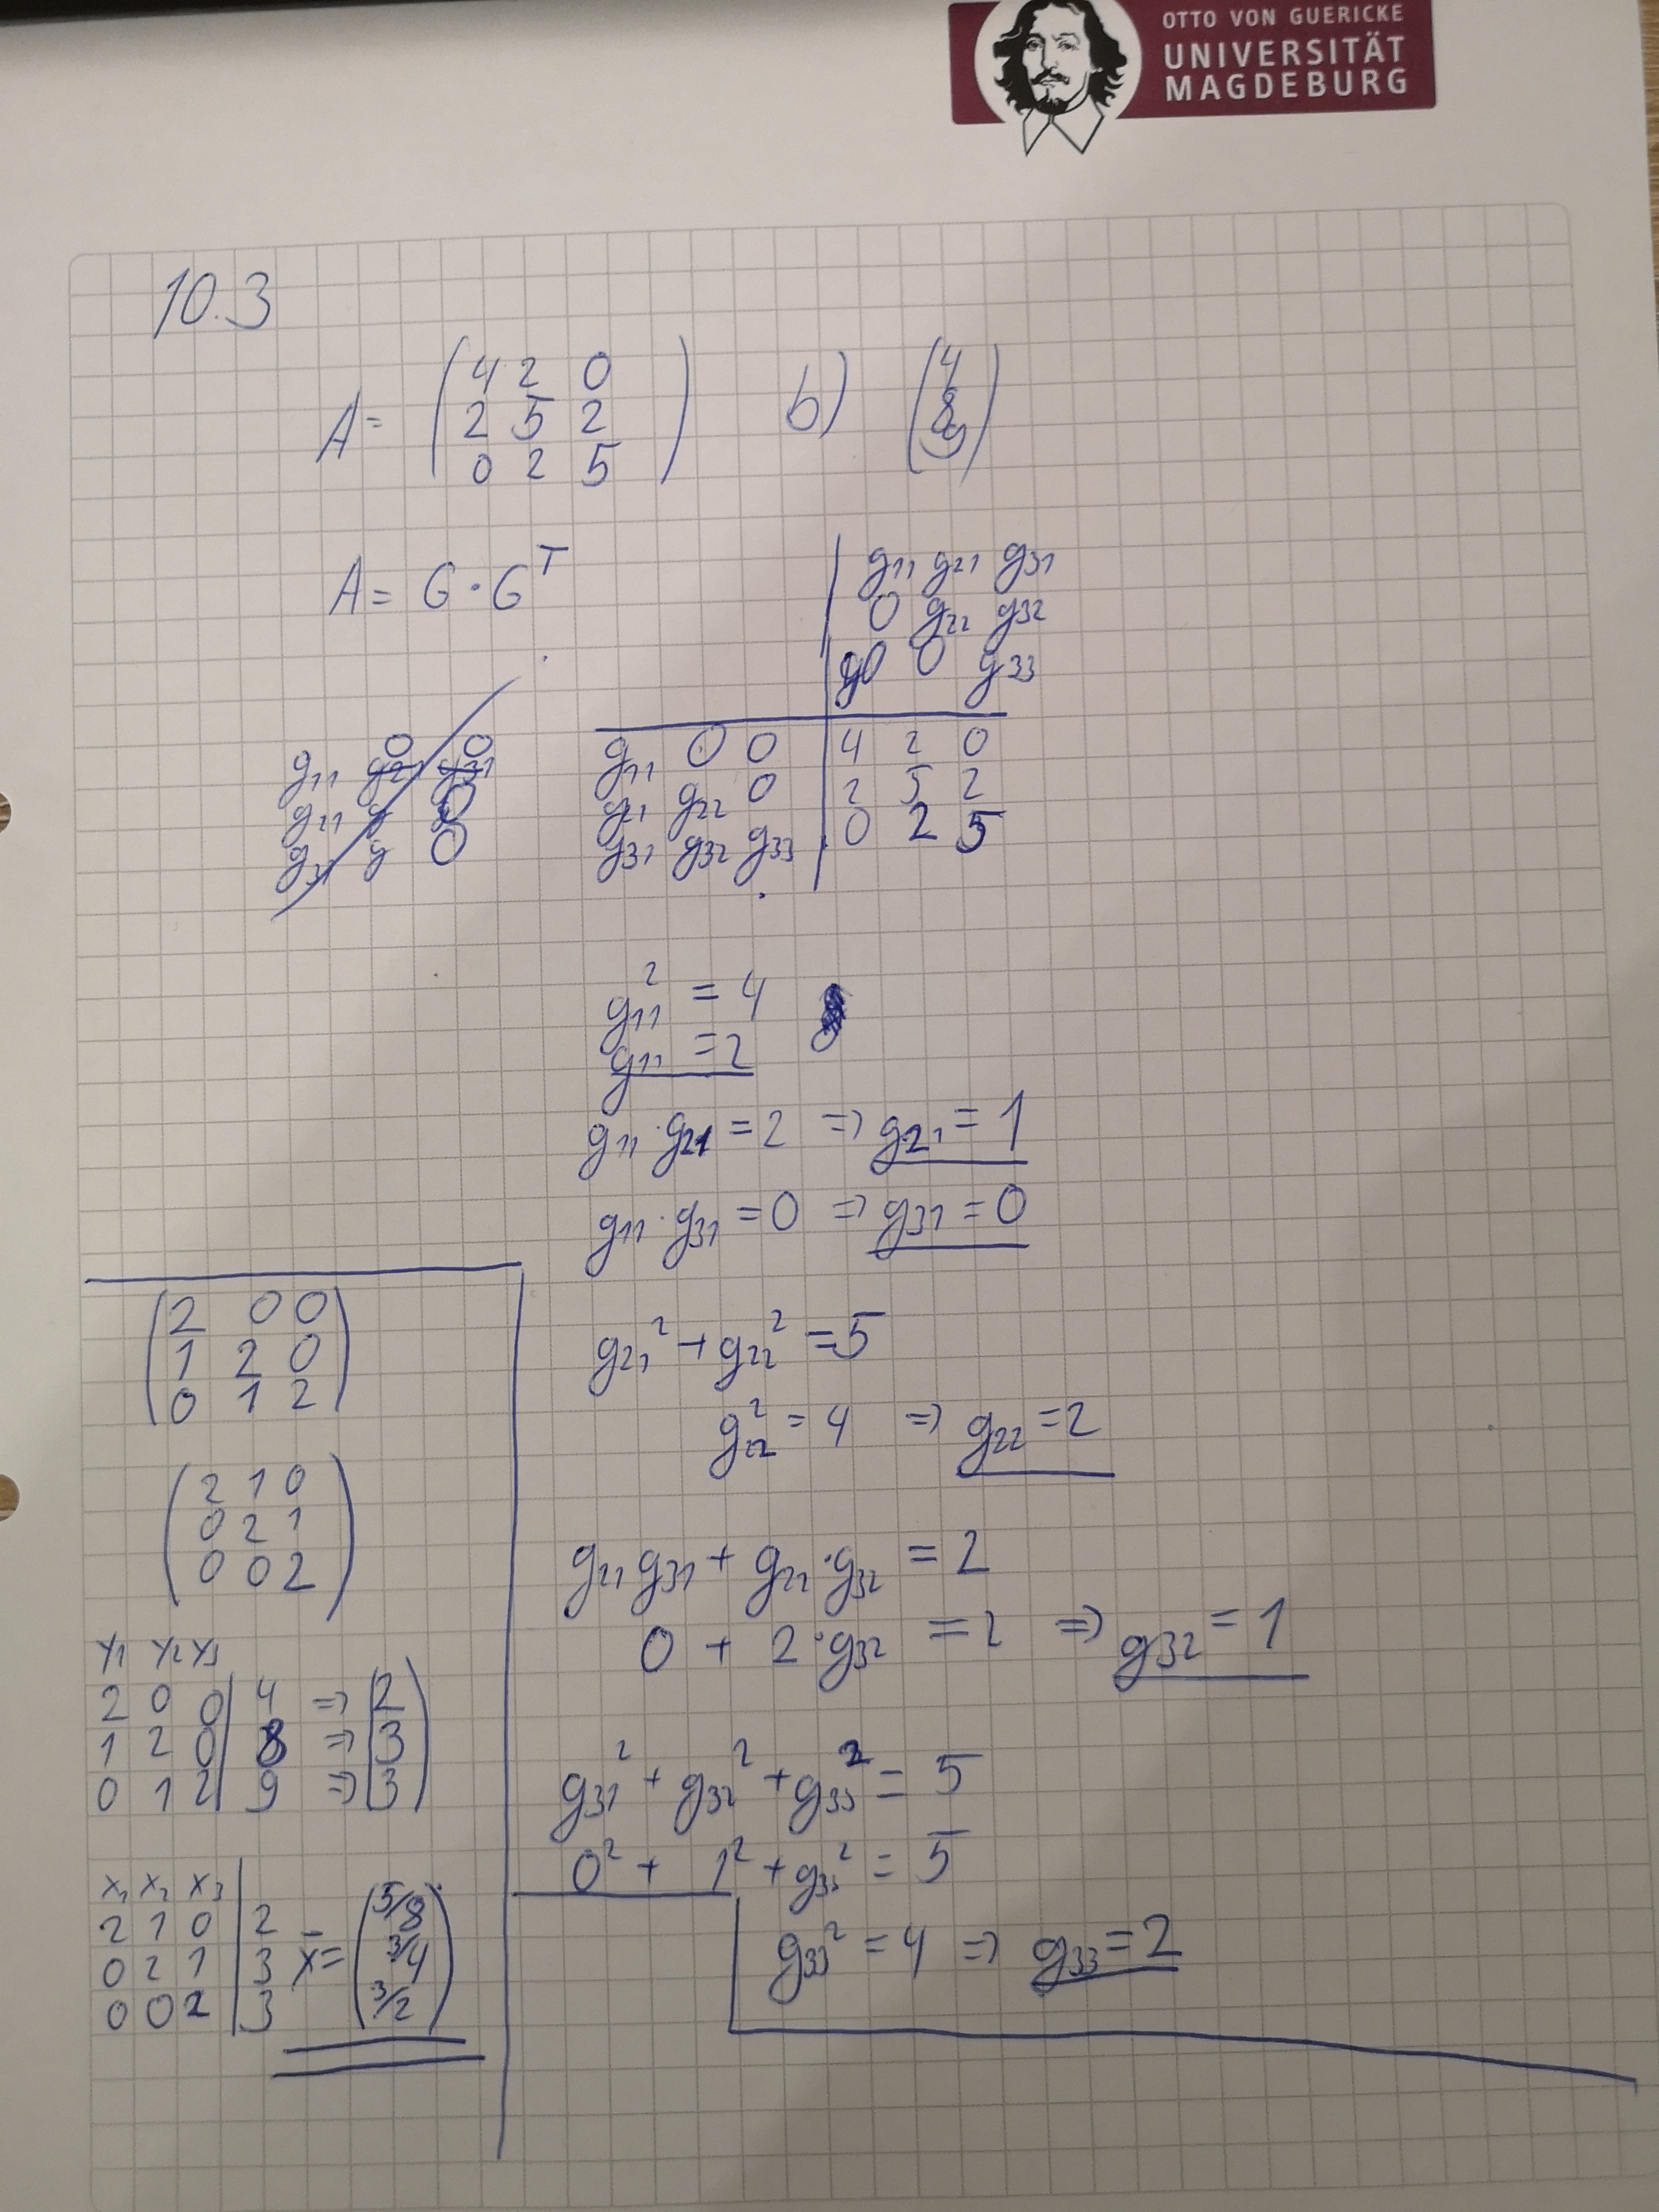 OTTO VON GUERICKE
UNIVERSITÄT
MAGDEBURG
10.3
A= (4 2 0 / 2 5 2 / 0 2 5) b) (4 / 8 / 9)
A= G · G^T
g11 g21 g31
0 g22 g32
0 0 g33
g11 0 0 | 4 2 0
g21 g22 0 | 2 5 2
g31 g32 g33 | 0 2 5
g11² = 4
g11 = 2
g11 · g21 = 2 => g21 = 1
g11 · g31 = 0 => g31 = 0
g21² + g22² = 5
g22² = 4 => g22 = 2
g21 g31 + g22 · g32 = 2
0 + 2 · g32 = 2 => g32 = 1
g31² + g32² + g33² = 5
0² + 1² + g33² = 5
g33² = 4 => g33 = 2
2 0 0
1 2 0
0 1 2
2 1 0
0 2 1
0 0 2
y1 y2 y3
2 0 0 | 4 => 2
1 2 0 | 8 => 3
0 1 2 | 9 => 3
x1 x2 x3
2 1 0 | 2
0 2 1 | 3
0 0 2 | 3
x̄ = (5/8 / 3/4 / 3/2)